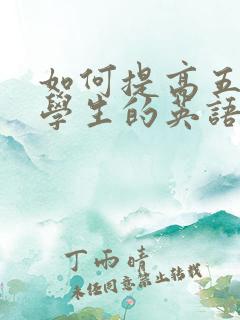 如何提高五
學生的英語
丁雨晴
未經同意禁止轉載